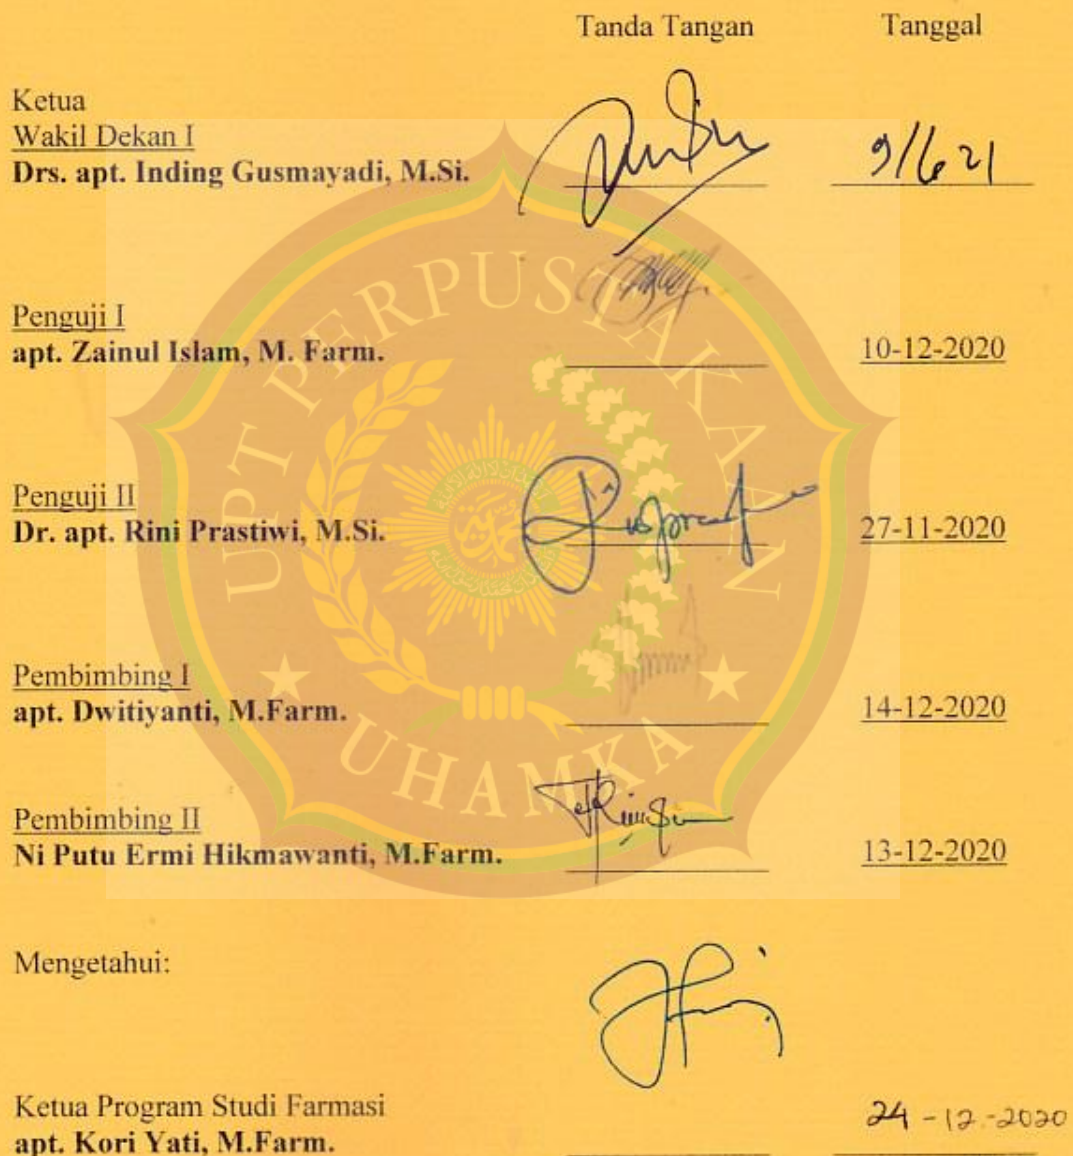 Tanda Tangan Tanggal
Ketua
Wakil Dekan I
Drs. apt. Inding Gusmayadi, M.Si. 9/6 21
Penguji I
apt. Zainul Islam, M. Farm. 10-12-2020
Penguji II
Dr. apt. Rini Prastiwi, M.Si. 27-11-2020
Pembimbing I
apt. Dwitiyanti, M.Farm. 14-12-2020
Pembimbing II
Ni Putu Ermi Hikmawanti, M.Farm. 13-12-2020
Mengetahui:
Ketua Program Studi Farmasi
apt. Kori Yati, M.Farm. 24-12-2020
UPT PERPUSTAKAAN
UHAMKA